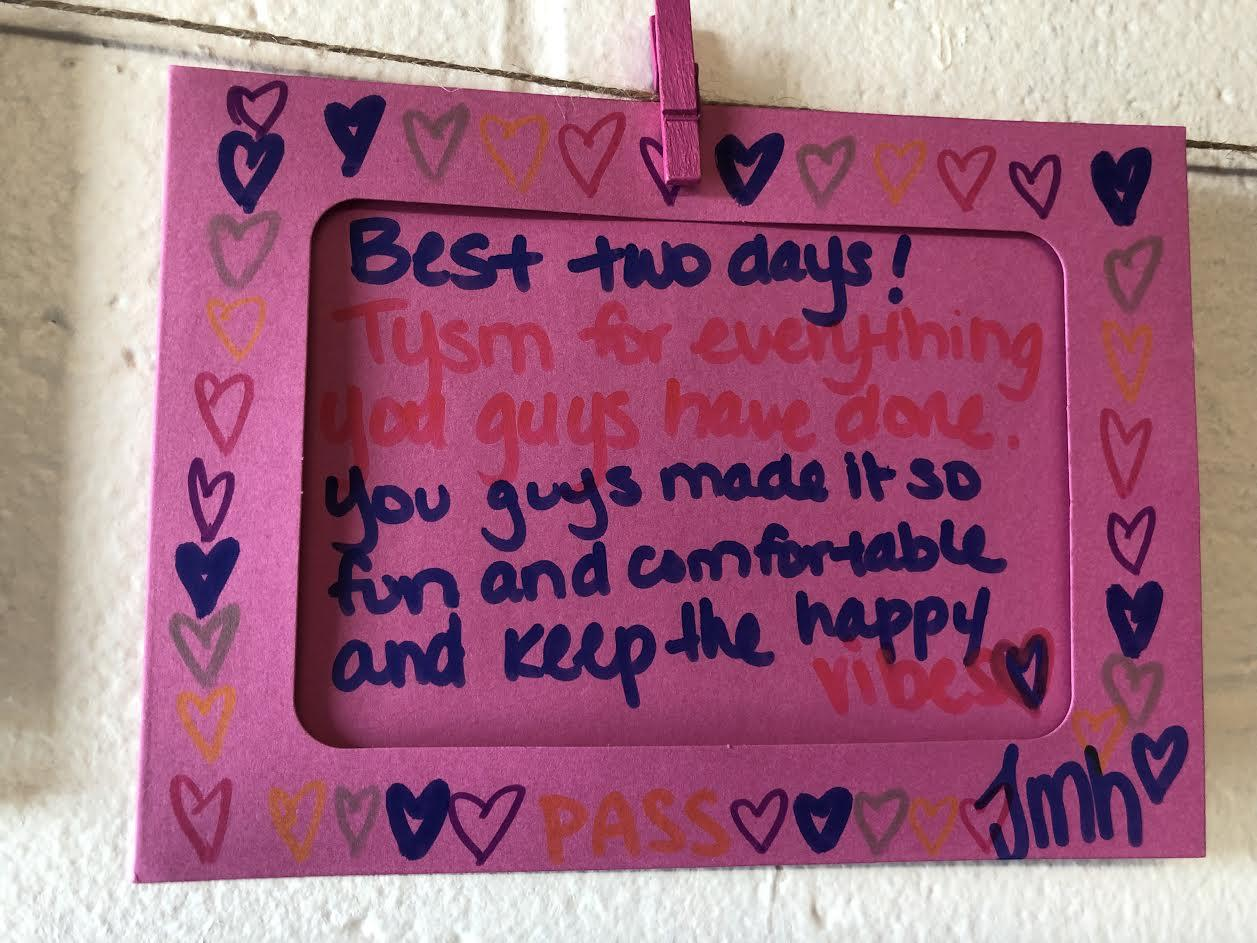 Best two days!
Tysm for everything
you guys have done.
You guys made it so
fun and comfortable
and keep the happy
vibes
PASS
Jmh